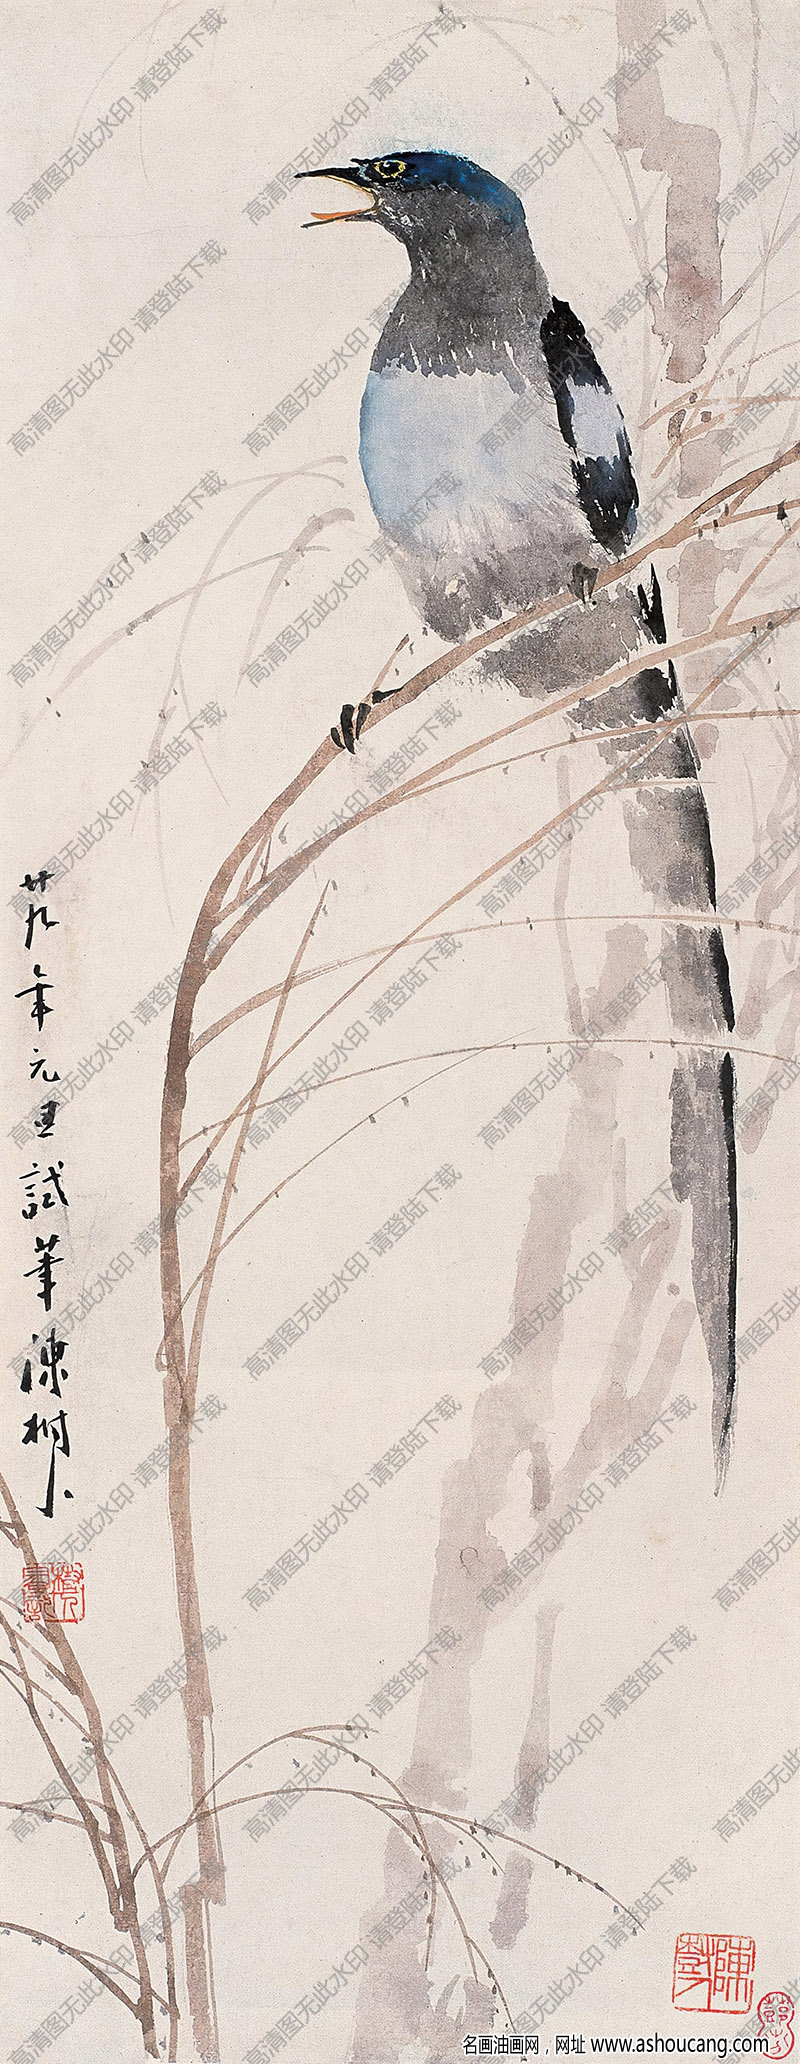 廿九年元旦試筆陳樹人
高清图无此水印 请登陆下载
名画油画网，网址 www.ashoucang.com